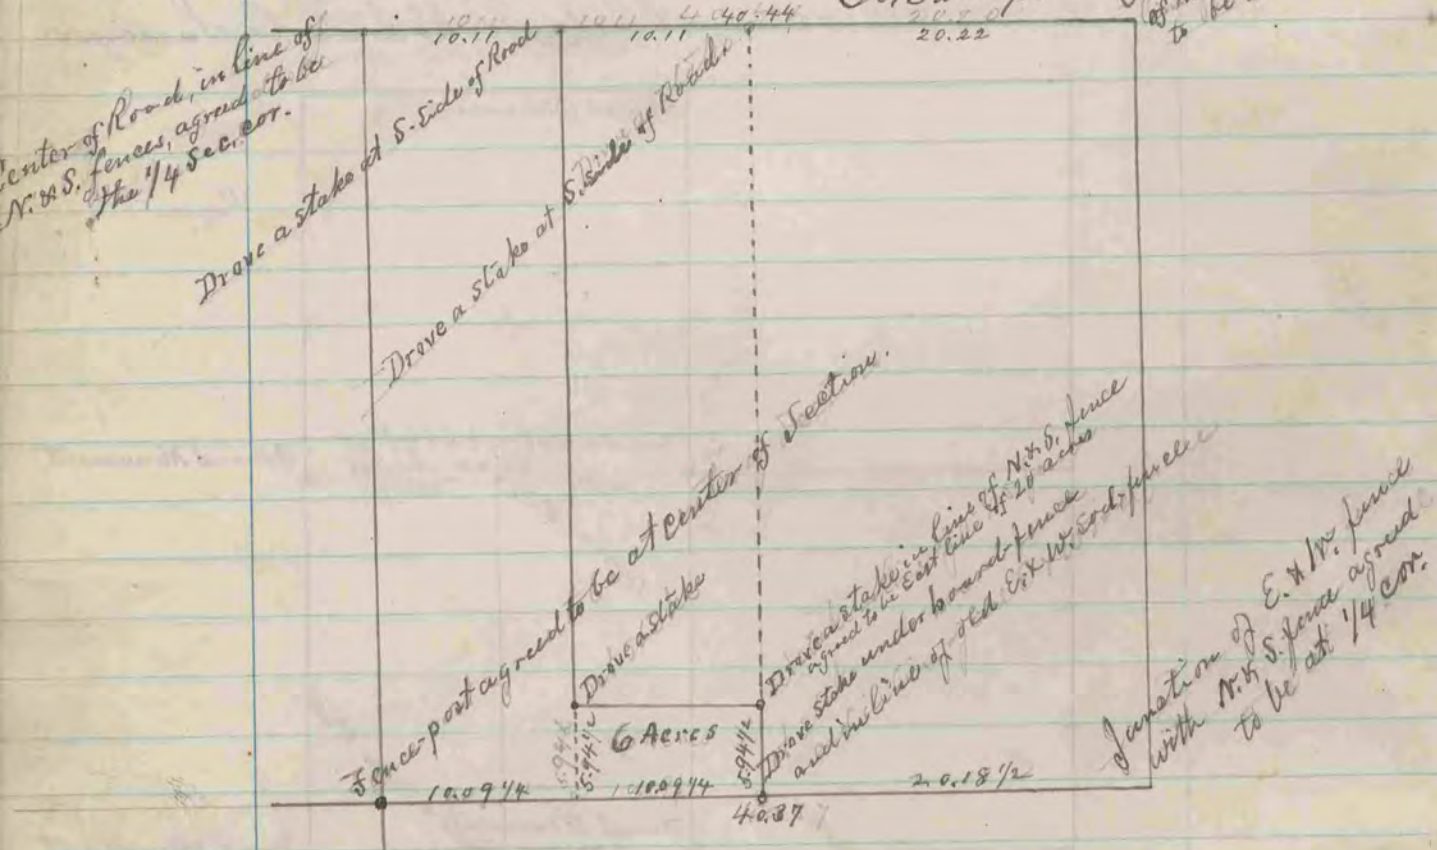 40.44
10.11
10.11
20.22
of
to be
Center of Road, in line of
N. & S. fences, agreed to be
the 1/4 Sec. cor.
Drove a stake at S. side of Road
Drove a stake at S. Side of Road.
Fence-post agreed to be at center of Section.
Drove a stake
Drove a stake in line of N. & S. fence
agreed to be East line of 20 acres
Drove stake under board-fence
and in line of old E. & W. fence
Junction of E. & W. fence
with N. & S. fence agreed
to be at 1/4 cor.
6 Acres
5.94 1/2
5.94 1/2
10.09 1/4
10.09 1/4
20.18 1/2
40.37